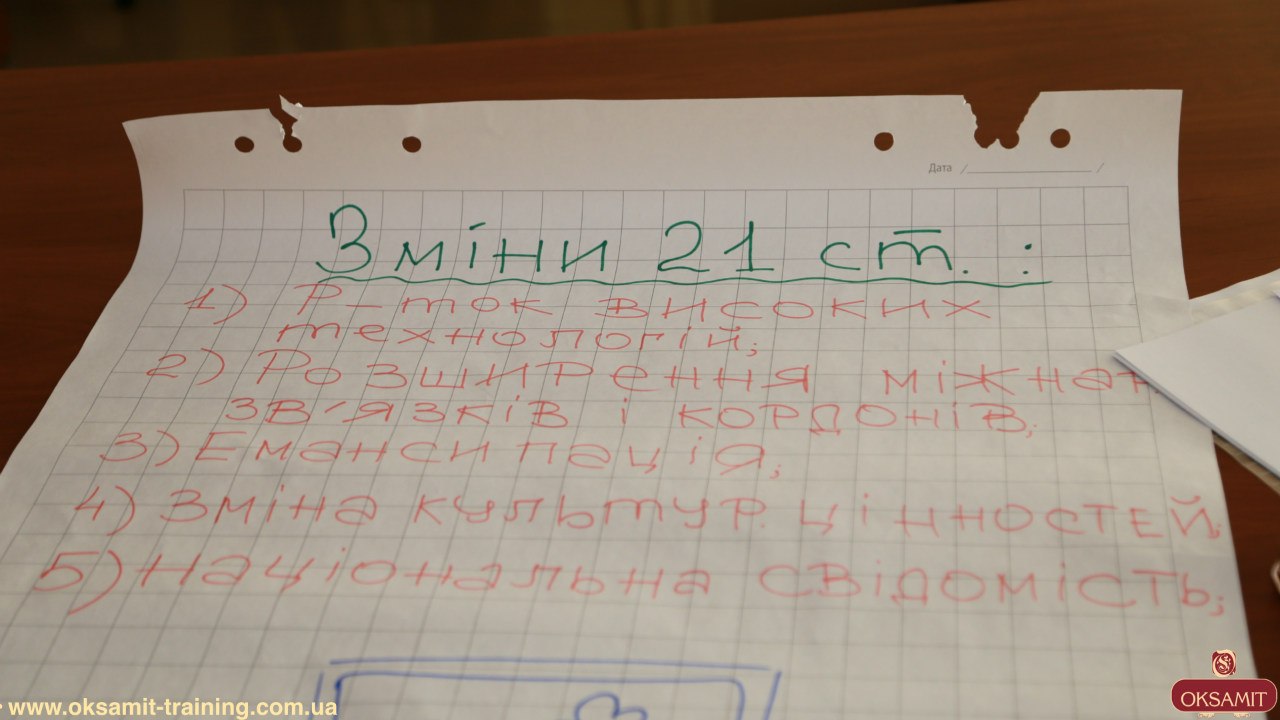 Дата / /
Зміни 21 ст. :
1) Р-ток високих
технологій;
2) Розширення міжнан.
зв'язків і кордонів;
3) Емансипація;
4) Зміна культур. цінностей;
5) Національна свідомість;
www.oksamit-training.com.ua
OKSAMIT